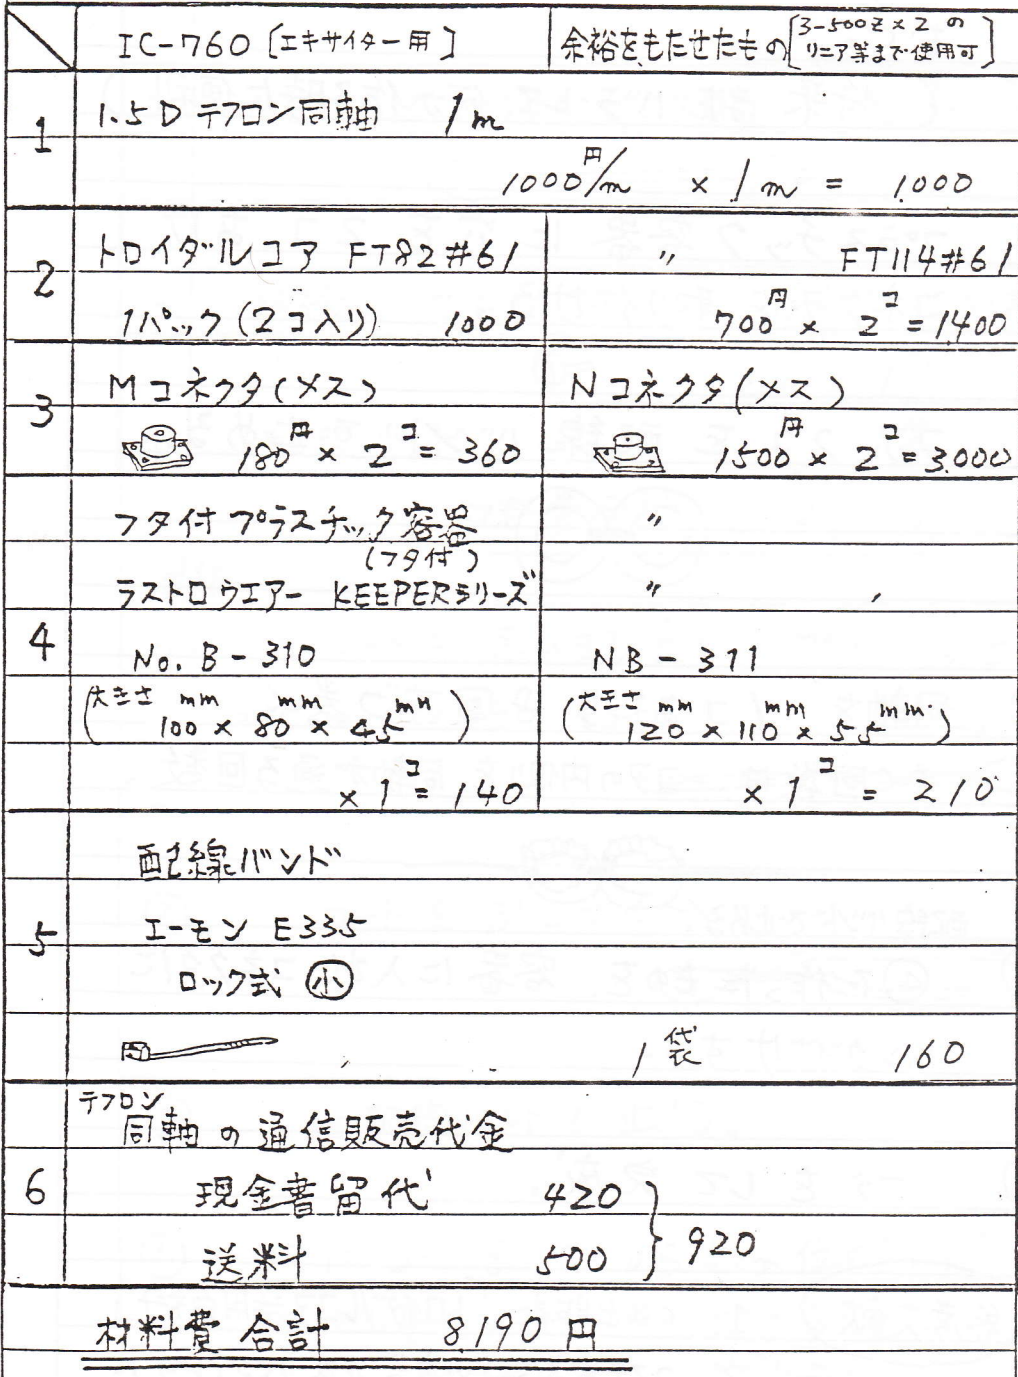 IC-760〔エキサイター用〕 余裕をもたせたもの[3-500Z×2の
リニア等まで使用可]
1 1.5Dテフロン同軸 1m
1000円/m × 1m = 1.000
2 トロイダルコア FT82#61 〃 FT114#61
1パック(2コ入り) 1.000 700円 × 2コ = 1.400
3 Mコネクタ(メス) Nコネクタ(メス)
180円 × 2コ = 360 1500円 × 2コ = 3.000
フタ付プラスチック容器 〃
(フタ付)
ラストロウエアー KEEPERシリーズ 〃
4 No. B-310 NB-311
(大きさ 100mm × 80mm × 45mm) (大きさ 120mm × 110mm × 55mm)
× 1コ = 140 × 1コ = 210
配線バンド
5 エーモン E335
ロック式 小
1袋 160
テフロン
同軸の通信販売代金
6 現金書留代 420
送料 500 } 920
材料費合計 8.190円